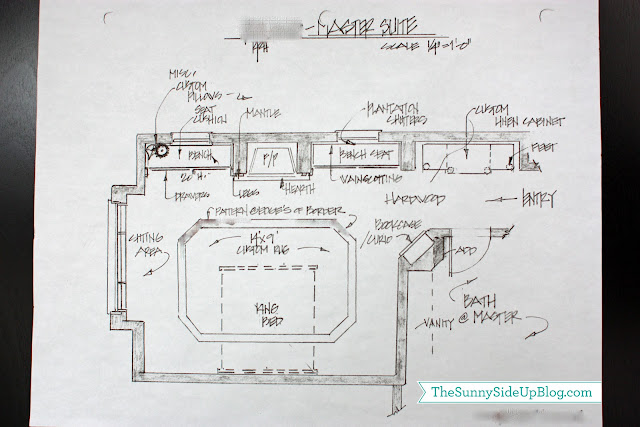 - MASTER SUITE
SCALE 1/4" = 1'-0"
MISC.
CUSTOM
PILLOWS
SEAT
CUSHION
MANTLE
PLANTATION
SHUTTERS
CUSTOM
LINEN CABINET
FEET
BENCH
F/P
BENCH SEAT
20" H.
DRAWERS
LEGS
HEARTH
WAINSCOTING
HARDWOOD
ENTRY
PATTERN @ EDGE'S OF BORDER
BOOKCASE
/CURIO
SITTING
AREA
14' X 9'
CUSTOM RUG
ADD
KING
BED
BATH
@ MASTER
VANITY
TheSunnySideUpBlog.com